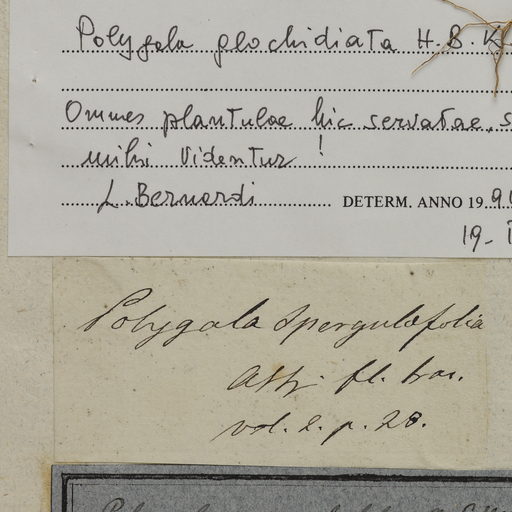 Polygala glochidiata H.B.K.
Ommes plantulae hic servatae, s
mihi videntur !
L. Bernardi DETERM. ANNO 19 90
19-
Polygala spergulaefolia
fl. bras.
vol. 2. p. 28.